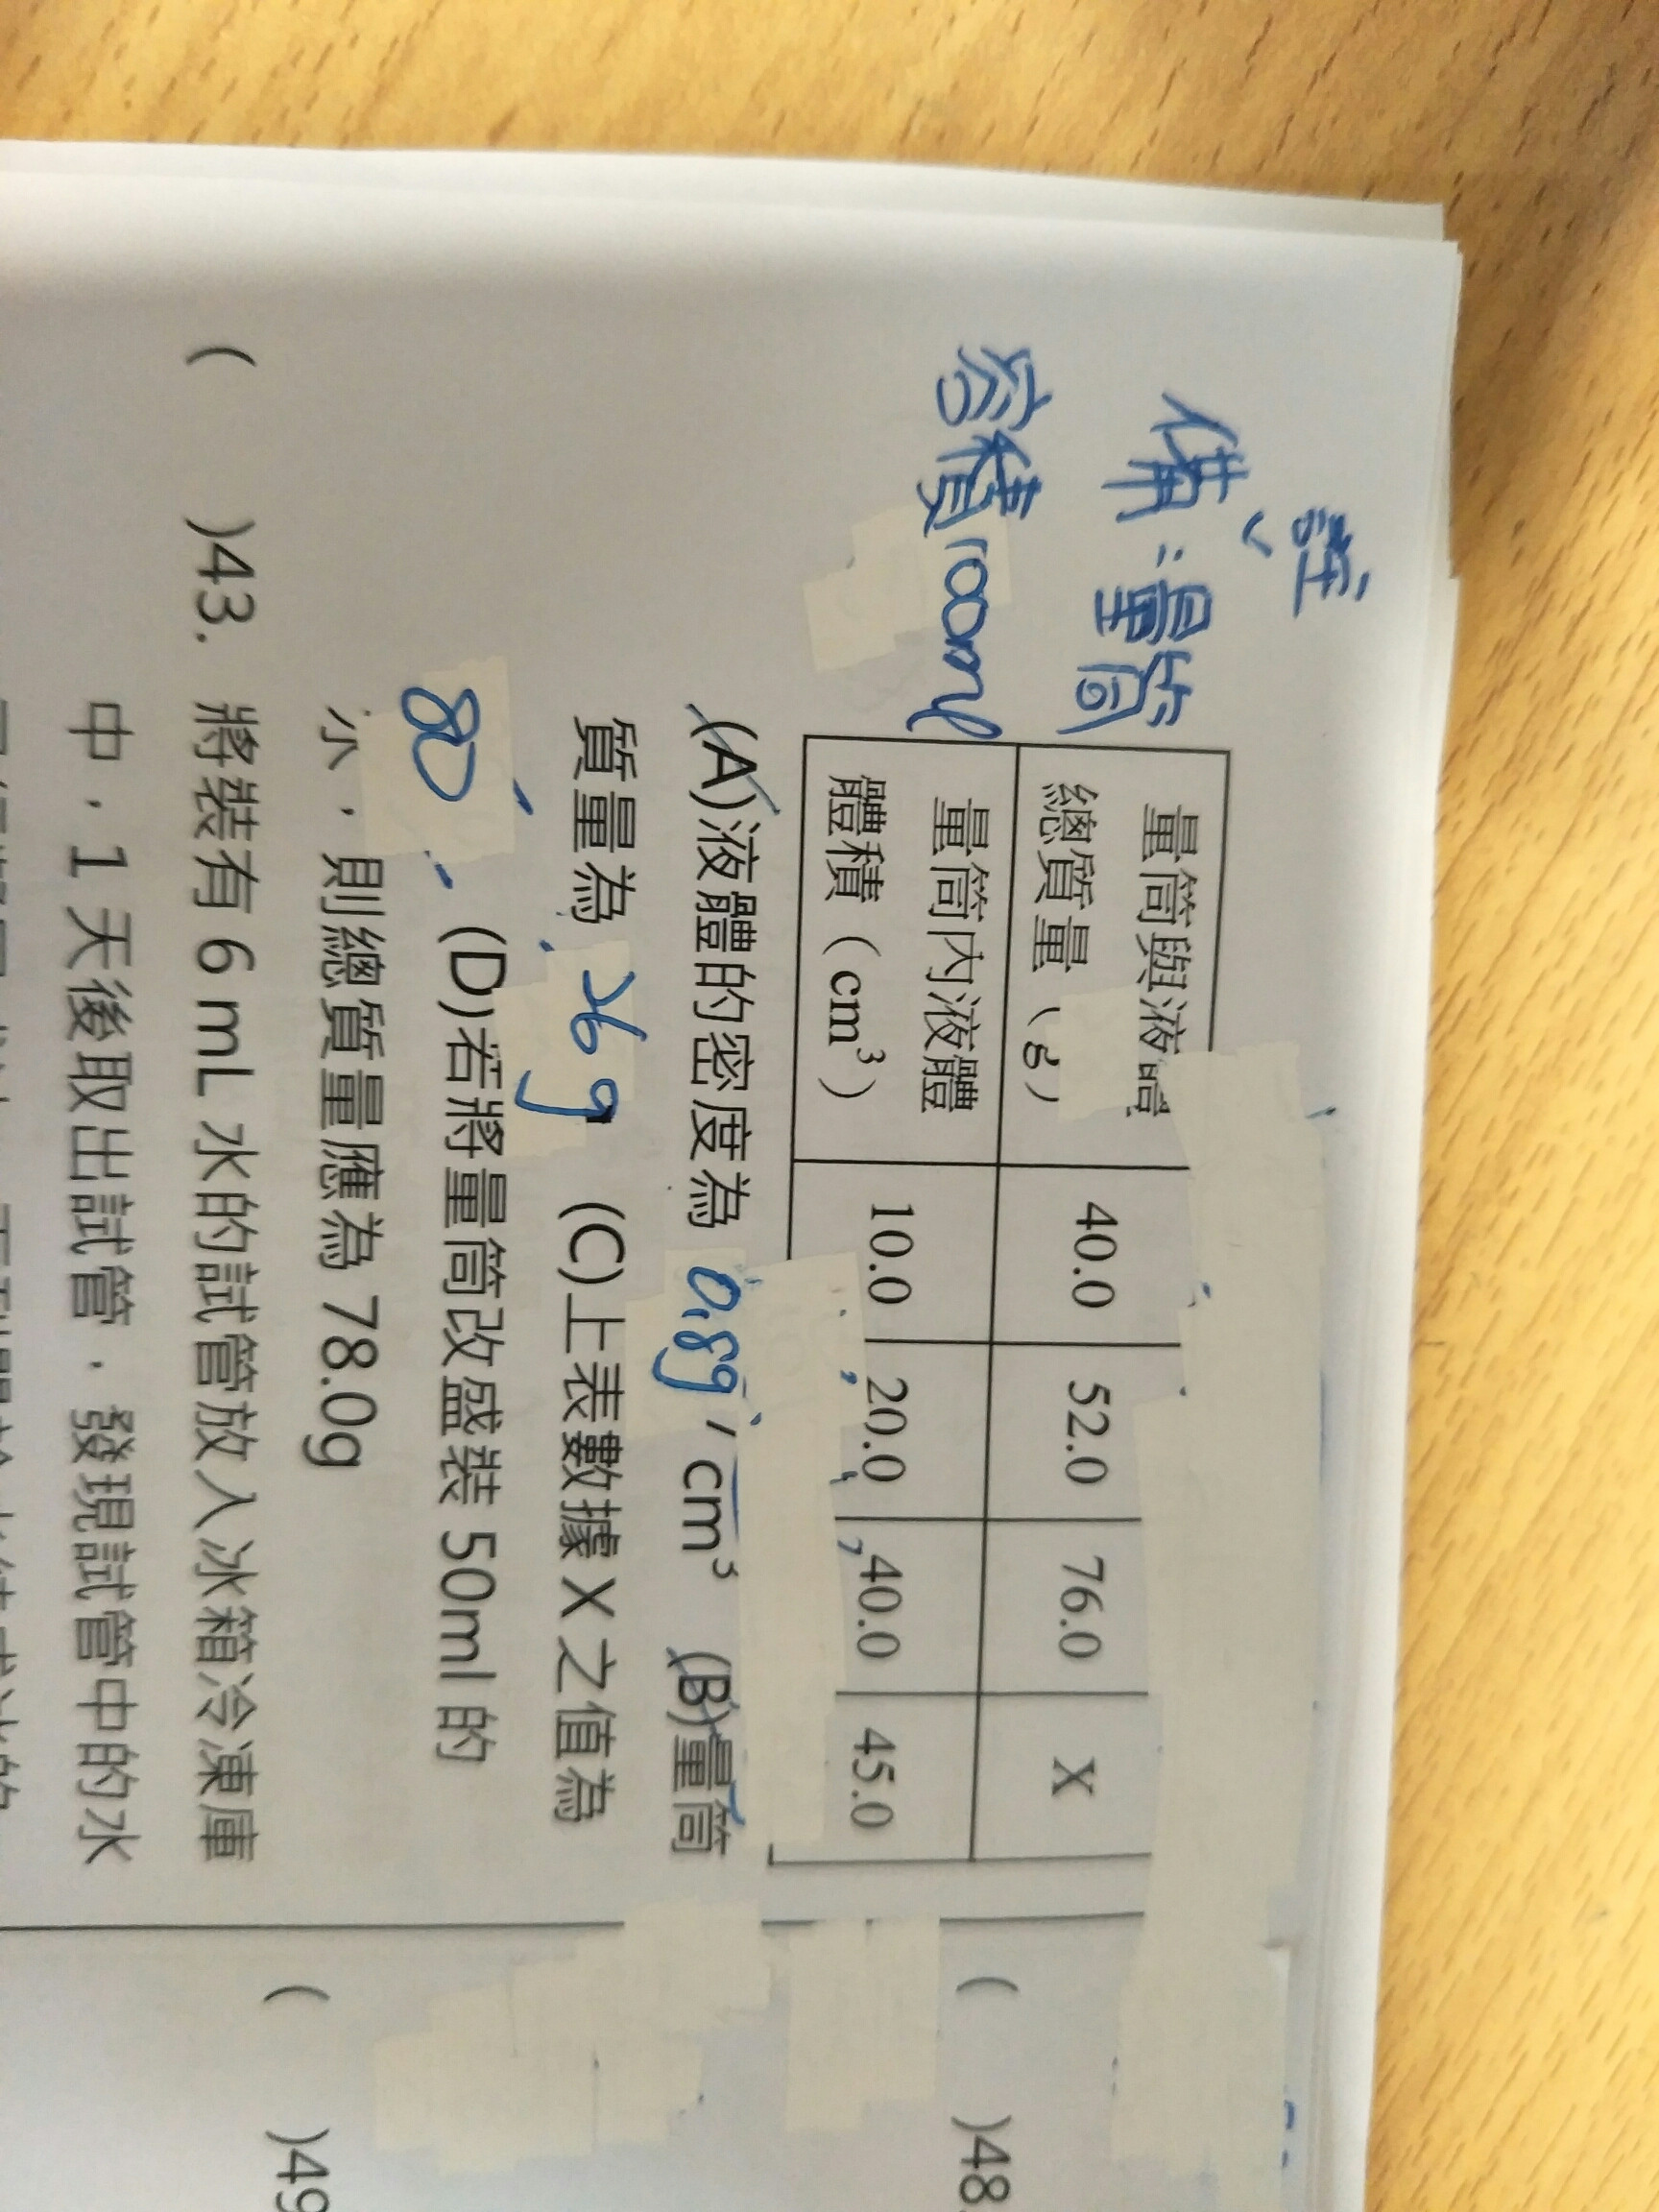 註
備、
：量筒
容積100ml
量筒與液體
總質量（g） 40.0 52.0 76.0 X
量筒內液體
體積（cm³） 10.0 20.0 40.0 45.0
(A)液體的密度為 0.8g/cm³ (B)量筒
質量為 26g (C)上表數據 X 之值為
80 (D)若將量筒改盛裝 50ml 的
水，則總質量應為 78.0g
( )43. 將裝有 6 mL 水的試管放入冰箱冷凍庫
中，1 天後取出試管，發現試管中的水
( )48.
( )49